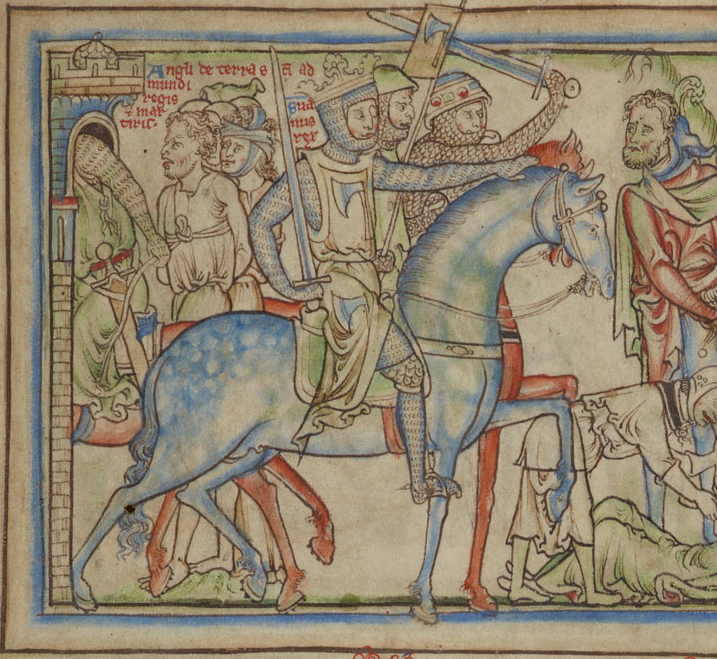 Angli de terra
mundi
regis
mar
tiris.
Sua
nus
rex